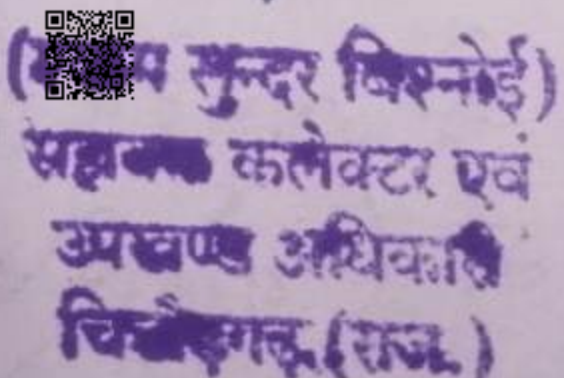 सुन्दर बिश्नोई)
सहायक कलेक्टर एवं
उपखण्ड अधिकारी
चित्तौड़गढ़ (राज.)